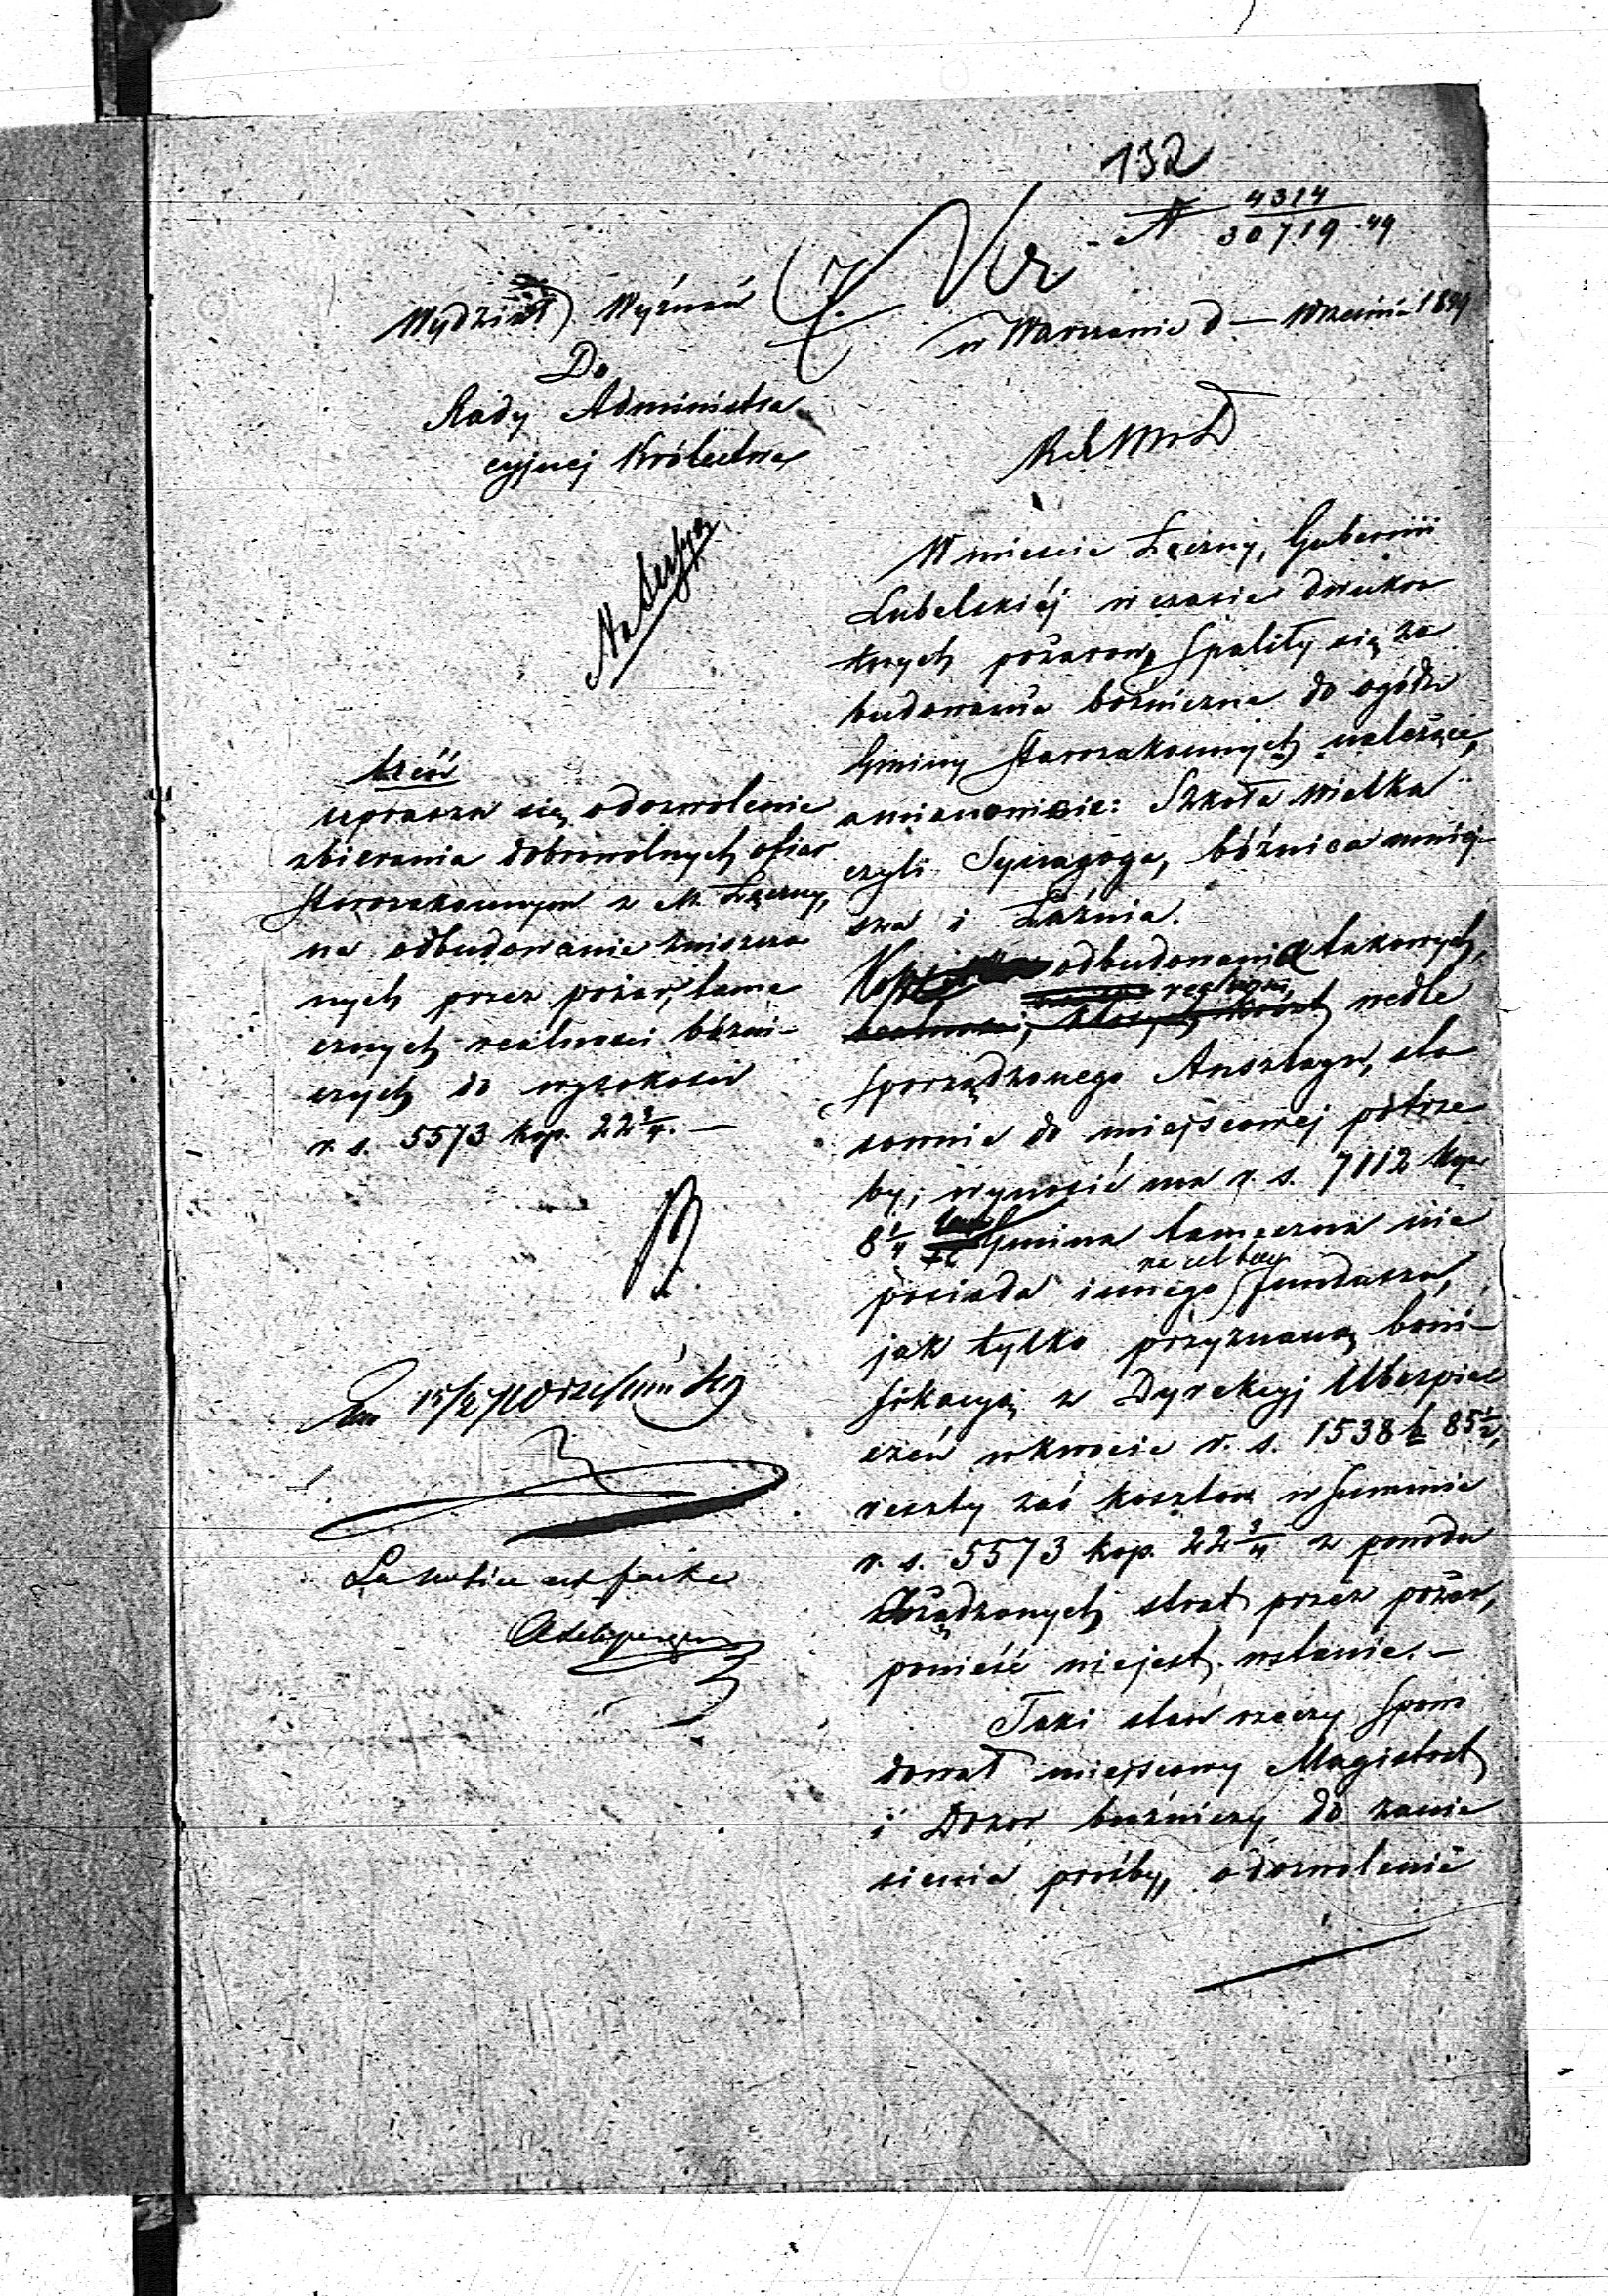 132
N 4314
30719.49
Wydział Wyznań
w Warszawie d — Września 1849
Do
Rady Administra
cyjnej Królestwa
treść
uprasza się odozwolenie
zbierania dobrowolnych ofiar
Starozakonnym z M. Łęczny,
na odbudowanie zniszczo
nych przez pożar, tame
cznych realności bóżni-
czych do wysokości
r. s. 5573 kop. 22 3/4. —
W mieście Łęczny, Gubernii
Lubelskiéj w czasie dwukro
tnych pożarow, spaliły się za
budowania bóżniczne do ogółu
Gminy Starozakonnych należące,
amianowicie: Szkoła Wielka
czyli Synagoga, bóżnica mniéj-
sza i Łaźnia.
odbudowania takowych,
realności, wedle
sporządzonego Anszlagu, sto
sownie do miejscowej potrze
by, wynosić ma r. s. 7112 kop.
8 1/4 Gmina tameczna nie
na cel ten
posiada innego funduszu,
jak tylko przyznaną boni-
fikacyą z Dyrekcyj Ubezpie
czeń wkwocie r. s. 1538 k 85 1/2,
reszty zaś kosztow w summie
r. s. 5573 kop. 22 3/4 z powodu
zrządzonych strat przez pożar,
ponieść niejest wstanie. —
Taki stan rzeczy spowo
dował miejscowy Magistrat
i Dozor bóżniczy do zanie
sienia prośby, odozwolenie